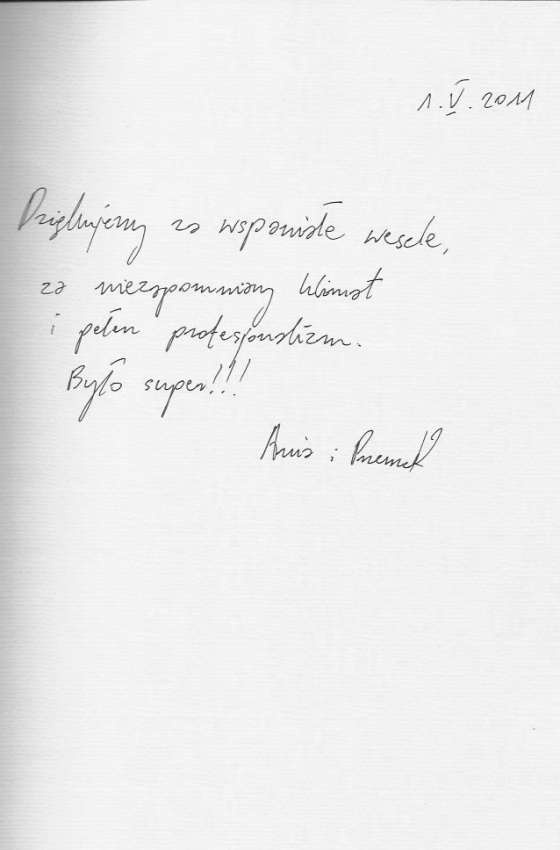 1. V. 2011
Dziękujemy za wspaniałe wesele,
za niezapomniany klimat
i pełen profesjonalizm.
Było super!!!
Ania i Przemek